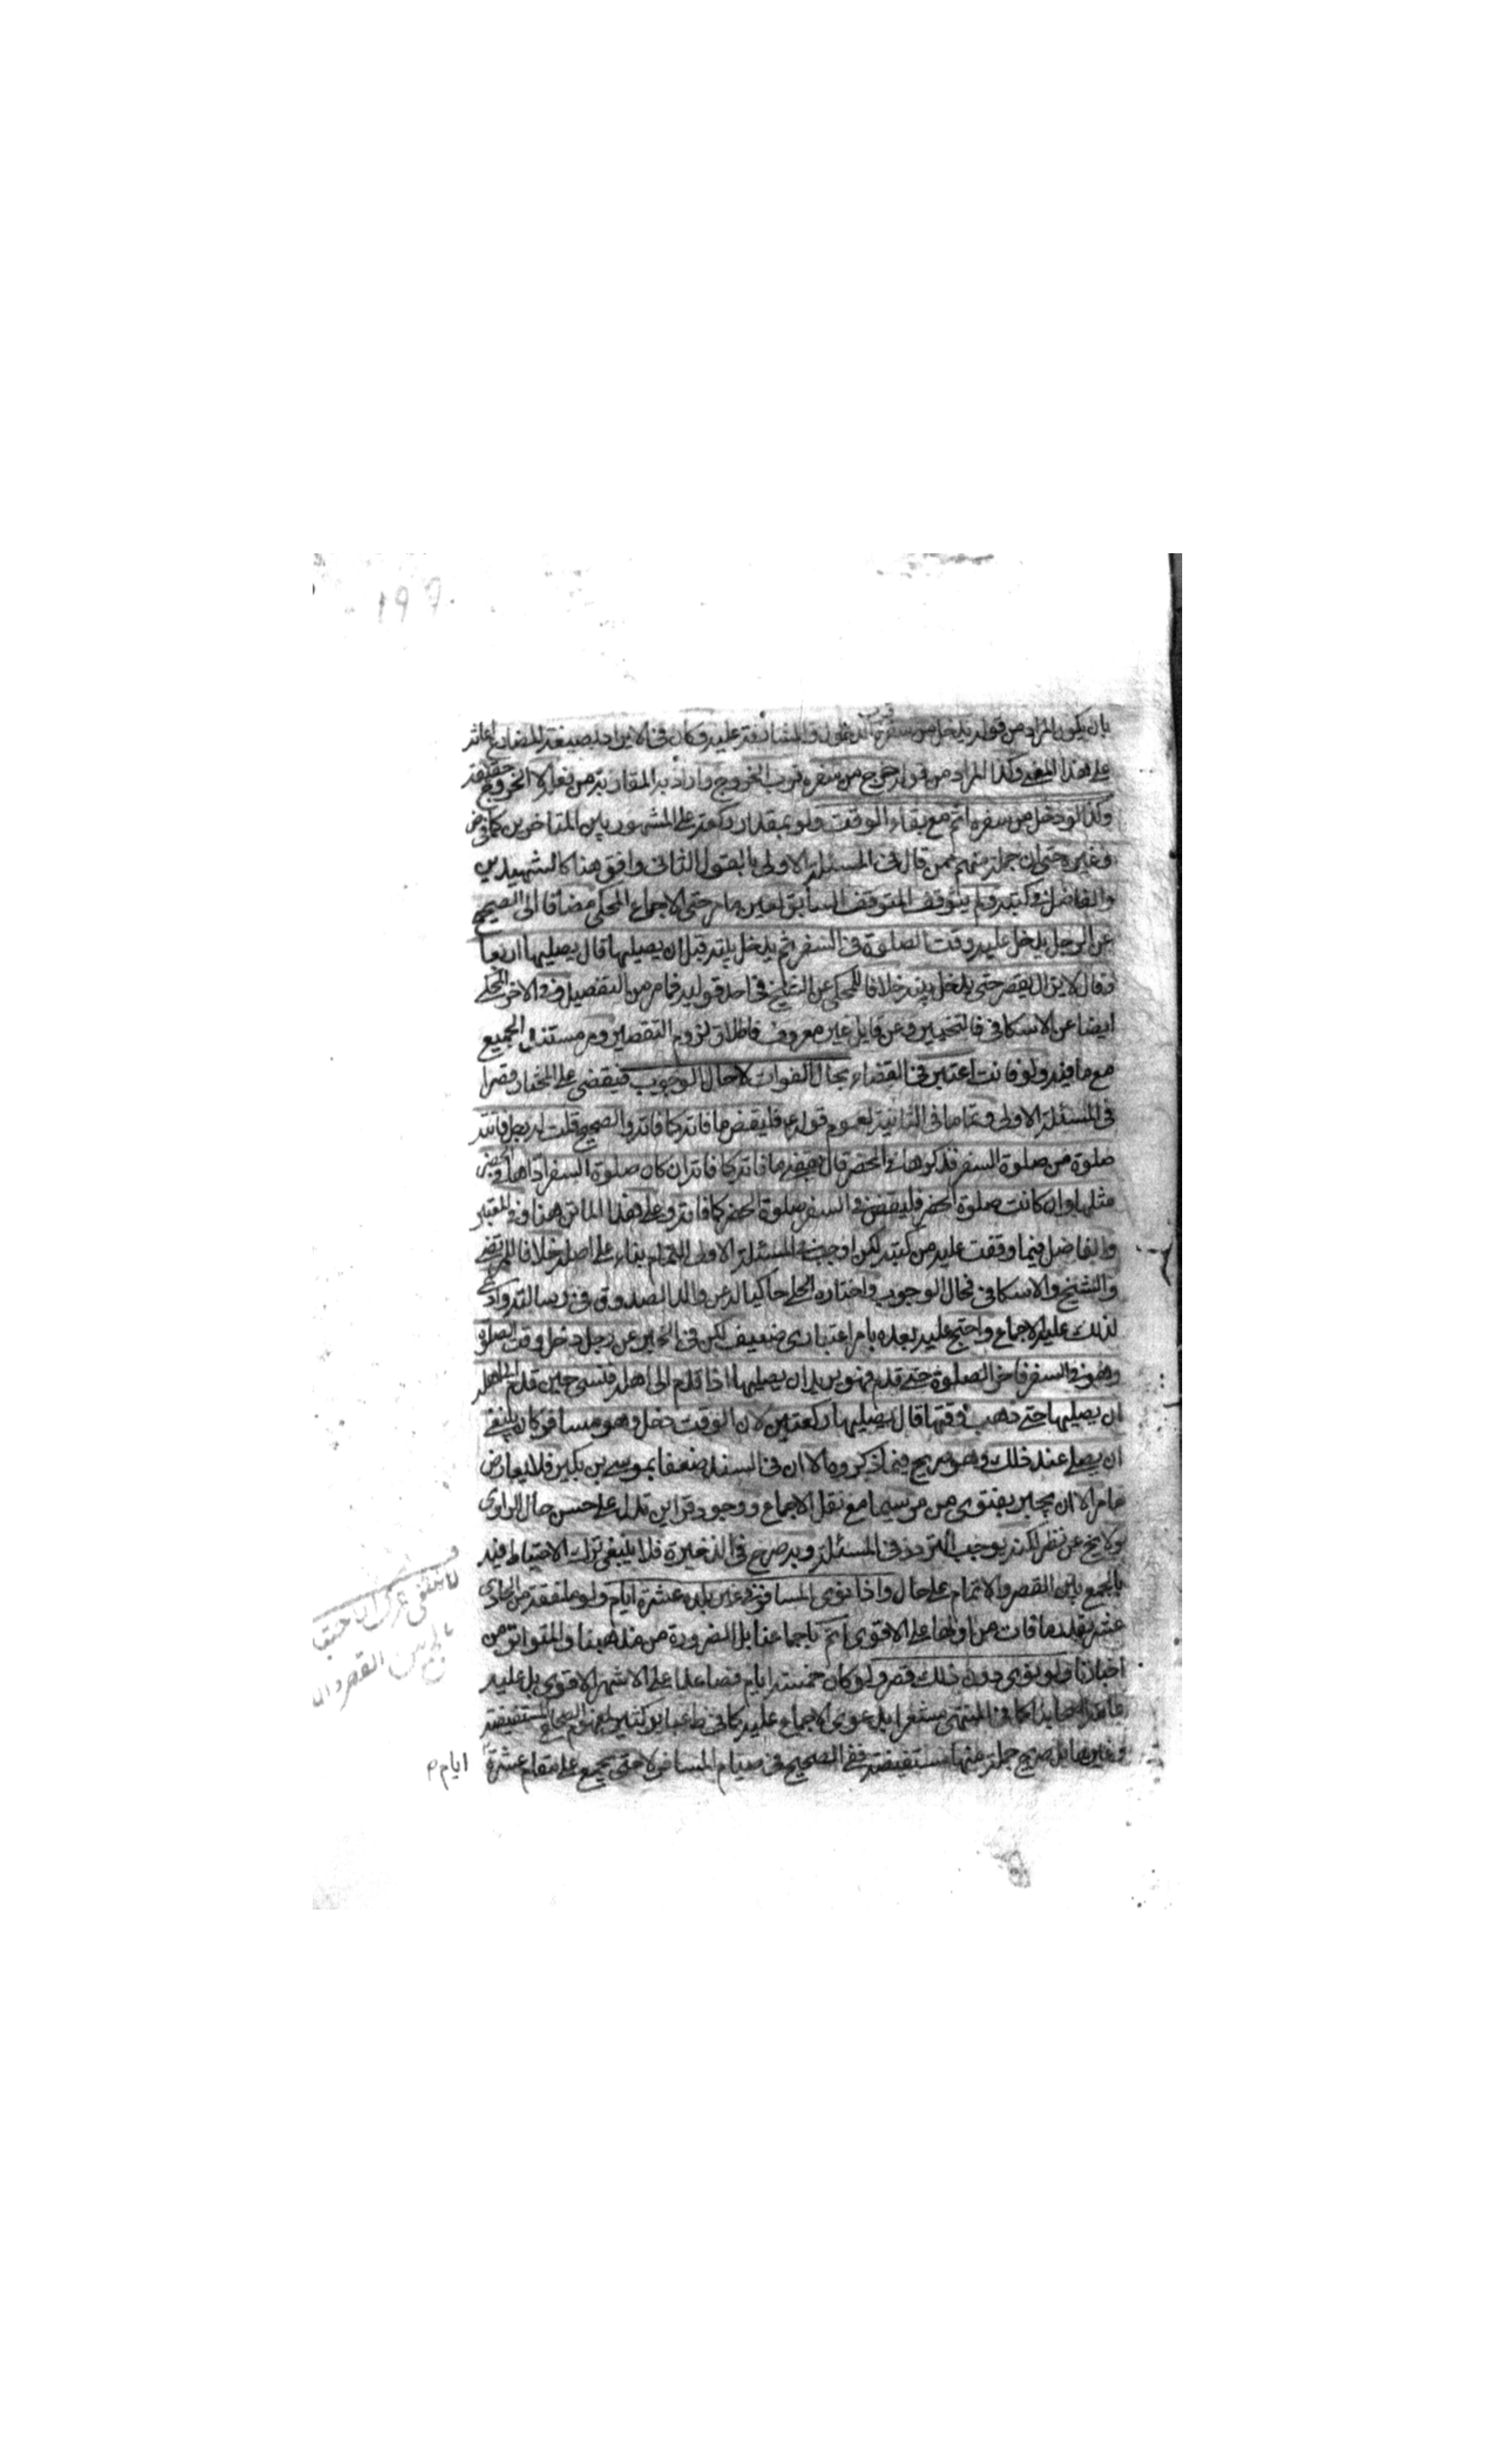 197
بان يكون المراد من قوله يدخل من سفره قرب الدخول والمشارفة عليه وكان في الايراد بصيغة المضارع اعانة
على هذا المعنى وكذا المراد من قوله خرج من سفره قرب الخروج واراد به المقاربة من فعله لا الخروج حقيقة
وكذا لو دخل من سفره اتم مع بقاء الوقت ولو بمقدار ركعة على المشهور بين المتاخرين كما في ض
وغيره حتى ان جملة منهم ممن قال في المسئلة الاولى بالقول الثاني وافق هنا كالشهيدين
والفاضل في كتبه ولم يتوقف المتوقف السابق لعين ما مر حتى الاجماع المحكي مضافا الى الصحيح
عن الرجل يدخل عليه وقت الصلوة في السفر ثم يدخل بيته قبل ان يصليها قال يصليها اربعا
وقال لا يزال يقصر حتى يدخل بيته خلافا للمحكي عن الشيخ في احد قوليه فما مر من التفصيل وفي الاخر المحكي
ايضا عن الاسكافي فالتخيير وعن قايل غير معروف فاطلاق لزوم التقصير ومر مستند الجميع
مع ما فيه ولو فاتت اعتبر في القضاء بحال الفوات لا حال الوجوب فيقضى على المختار قصرا
في المسئلة الاولى وتماما في الثانية لعموم قوله ع فليقض ما فاته كما فاته والصحيح قلت له رجل فاتته
صلوة من صلوة السفر فذكرها في الحضر قال يقضي ما فاته كما فاته ان كان صلوة السفر اداها في الحضر
مثلها وان كانت صلوة الحضر فليقض في السفر صلوة الحضر كما فاته وعلى هذا الماتن هنا وفي المعتبر
والفاضل فيما وقفت عليه من كتبه لكن اوجب في المسئلة الاولى التمام بناء على اصله خلافا للمرتضى
والشيخ والاسكافي فحال الوجوب واختاره الحلي حاكيا له عن والد الصدوق في رسالته وادعى
لذلك عليه الاجماع واحتج عليه بعده بامر اعتباري ضعيف لكن في الخبر عن رجل دخل وقت الصلوة
وهو في السفر فاخر الصلوة حتى قدم فهو يريد ان يصليها اذا قدم الى اهله فنسي حين قدم الى اهله
ان يصليها حتى ذهب وقتها قال يصليها ركعتين لان الوقت دخل وهو مسافر كان ينبغي
ان يصلي عند ذلك وهو صريح فيما ذكروه الا ان في السند ضعفا بموسى بن بكير فلا يعارض
ما مر الا ان يجبر بفتوى من مر سيما مع نقل الاجماع ووجود قراين تدل على حسن حال الراوي
ولا يخ عن نظر لكنه يوجب التردد في المسئلة وبه صرح في الذخيرة فلا ينبغي ترك الاحتياط فيه
بالجمع بين القصر والاتمام على حال واذا نوى المسافر في غير بلده عشرة ايام ولو ملفقة من الحادي
عشر بقدر ما فات من اولها على الاقوى اتم باجماعنا بل الضرورة من مذهبنا والمتواتر من
اخبارنا ولو نوى دون ذلك قصر ولو كان خمسة ايام فصاعدا على الاشهر الاقوى بل عليه
عامة اصحابنا كما في المنتهى مشعرا بدعوى الاجماع عليه كما في عباير كثير لمفهوم الصحاح المستفيضة
وغيرها بل صريح جملة منها مستفيضة ففي الصحيح في صيام المسافر لا حتى يجمع على مقام عشرة
ايام م